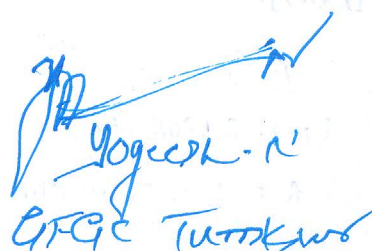 Yogeesh - N
GFGC Tumkur